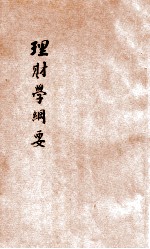 理財學綱要